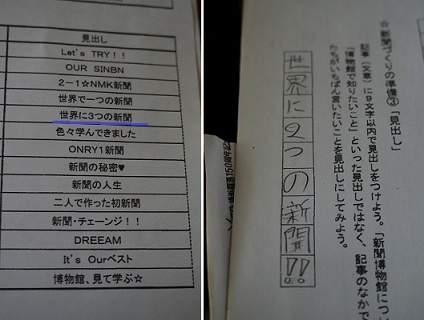 見出し
Let's TRY！！
OUR SINBN
2－1☆NMK新聞
世界で一つの新聞
世界に3つの新聞
色々学んできました
ONRY1新聞
新聞の秘密♥
新聞の人生
二人で作った初新聞
新聞・チェンジ！！
DREEAM
It's Ourベスト
博物館、見て学ぶ☆
☆新聞づくりの準備③「見出し」
記事（文章）に9文字以内で見出しをつけよう。「新聞博物館につ
「博物館で知りたいこと」といった見出しではなく、記事のなかで
たちがいちばん言いたいことを見出しにしてみよう。
世界に2つの新聞!!
150周年記